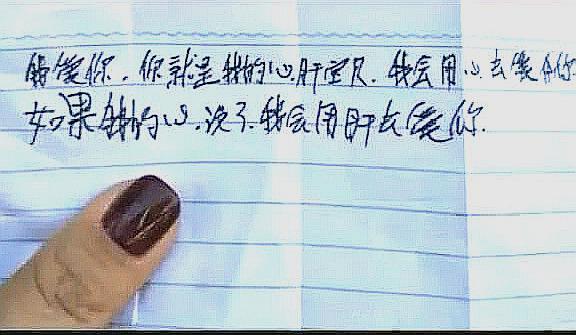 我爱你.你就是我的心肝宝贝.我会用心去爱你
如果我的心.没了.我会用肝去爱你.